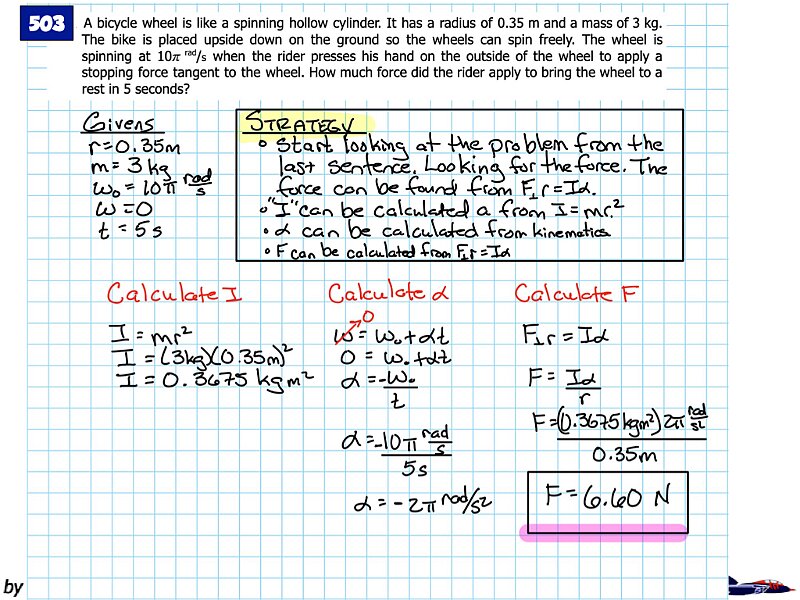 503
A bicycle wheel is like a spinning hollow cylinder. It has a radius of 0.35 m and a mass of 3 kg.
The bike is placed upside down on the ground so the wheels can spin freely. The wheel is
spinning at 10π rad/s when the rider presses his hand on the outside of the wheel to apply a
stopping force tangent to the wheel. How much force did the rider apply to bring the wheel to a
rest in 5 seconds?
Givens
r=0.35m
m=3 kg
ω₀=10π rad/s
ω=0
t=5s
STRATEGY
• Start looking at the problem from the
last sentence. Looking for the force. The
force can be found from F⊥r=Iα.
• "I" can be calculated a from I=mr².
• α can be calculated from kinematics
• F can be calculated from F⊥r=Iα
Calculate I
I=mr²
I=(3kg)(0.35m)²
I=0.3675 kgm²
Calculate α
0
ω=ω₀+αt
0=ω₀+αt
α=-ω₀/t
α=-10π rad/s / 5s
α=-2π rad/s²
Calculate F
F⊥r=Iα
F=Iα/r
F=(0.3675kgm²)2π rad/s² / 0.35m
F=6.60 N
by